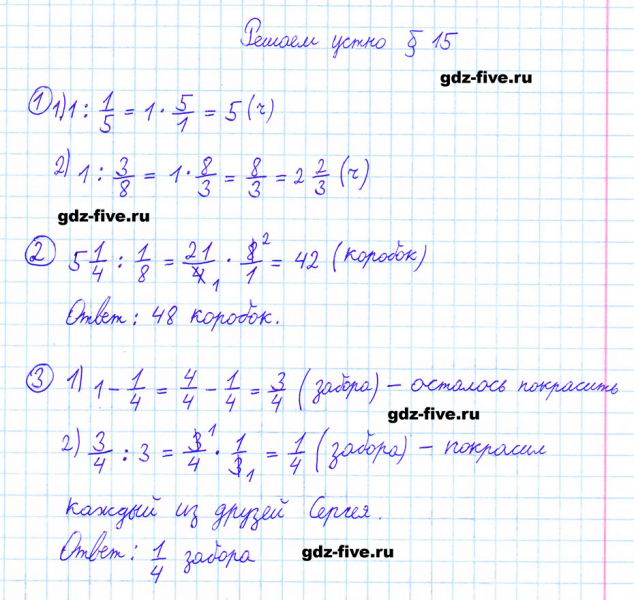 Решаем устно § 15
gdz-five.ru
① 1) 1 : 1/5 = 1 · 5/1 = 5 (ч)
2) 1 : 3/8 = 1 · 8/3 = 8/3 = 2 2/3 (ч)
gdz-five.ru
② 5 1/4 : 1/8 = 21/4 1 · 8 2/1 = 42 (коробок)
Ответ: 48 коробок.
③ 1) 1 - 1/4 = 4/4 - 1/4 = 3/4 (забора) - осталось покрасить
gdz-five.ru
2) 3/4 : 3 = 3 1/4 · 1/3 1 = 1/4 (забора) - покрасил
каждый из друзей Сергея.
Ответ: 1/4 забора
gdz-five.ru